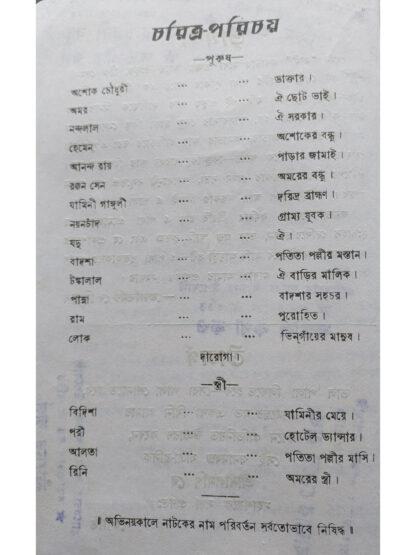 চরিত্র-পরিচয়
—পুরুষ—
অশোক চৌধুরী ... ... ডাক্তার।
অমর ... ... ঐ ছোট ভাই।
নন্দলাল ... ... ঐ সরকার।
হেমেন ... ... অশোকের বন্ধু।
আনন্দ রায় ... ... পাড়ার জামাই।
রঞ্জন সেন ... ... অমরের বন্ধু।
যামিনী গাঙ্গুলী ... ... দরিদ্র ব্রাহ্মণ।
নয়নচাঁদ ... ... গ্রাম্য যুবক।
যদু ... ... ঐ।
বাদশা ... ... পতিতা পল্লীর মস্তান।
টঙ্কালাল ... ... ঐ বাড়ির মালিক।
পান্না ... ... বাদশার সহচর।
রাম ... ... পুরোহিত।
লোক ... ... ভিন্‌গাঁয়ের মানুষ।
দারোগা।
—স্ত্রী—
বিদিশা ... ... যামিনীর মেয়ে।
পরী ... ... হোটেল ড্যান্সার।
আলতা ... ... পতিতা পল্লীর মাসি।
রিনি ... ... অমরের স্ত্রী।
॥ অভিনয়কালে নাটকের নাম পরিবর্তন সর্বতোভাবে নিষিদ্ধ ॥